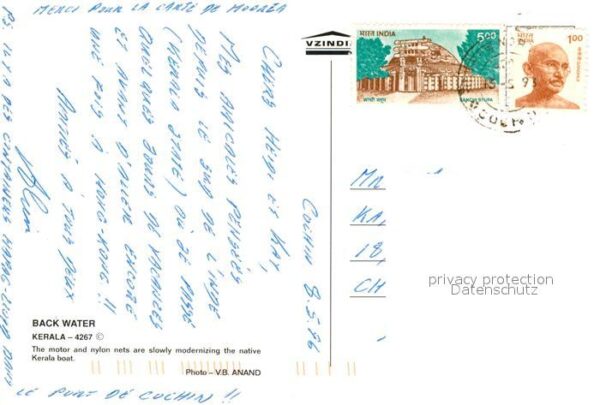 MERCI POUR LA CARTE DE MOOREA
COCHIN 8.5.96
CHERS
ET KAY,
MES AMICALES PENSÉES
DEPUIS LE SUD DE L'INDE
(KERALA STATE) OÙ JE PASSE
QUELQUES JOURS DE VACANCES
ET AVANT D'ALLER ENCORE
UNE FOIS À HONG-KONG !!
AMITIÉS À TOUS DEUX
PS. IL Y A DES CONTAINERS HAPAG-LLOYD DANS
LE PORT DE COCHIN !!
BACK WATER
KERALA – 4267 ©
The motor and nylon nets are slowly modernizing the native
Kerala boat.
Photo – V.B. ANAND
VZINDIA
भारत INDIA
5.00
सांची स्तूप
SANCHI STUPA
भारत
1.00
COCHIN
MR
KA
18
CH
privacy protection
Datenschutz